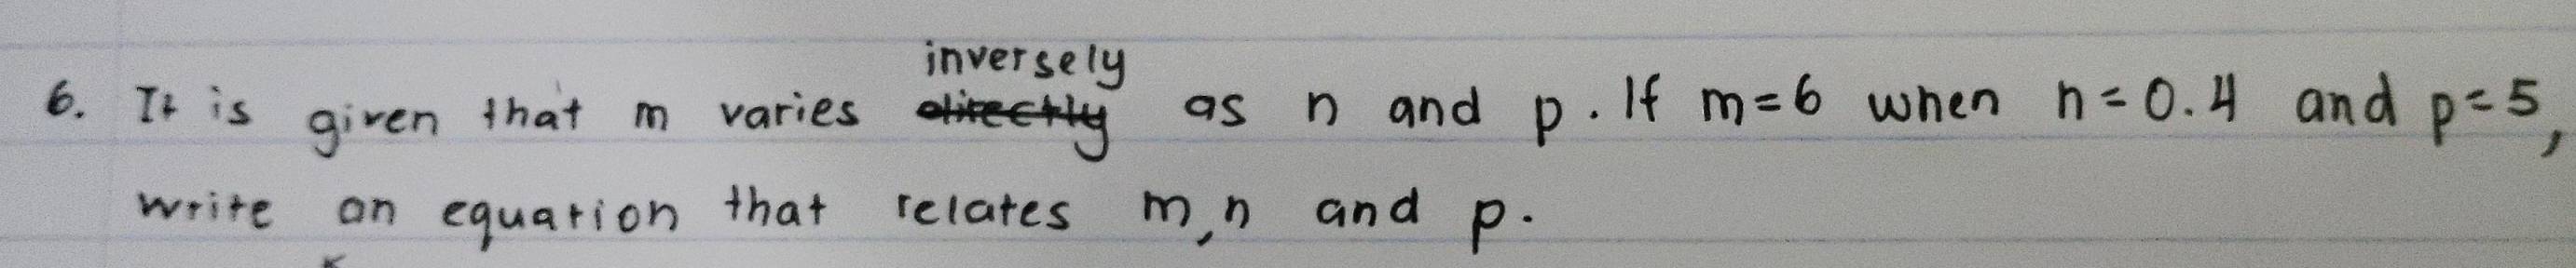 inversely
6. It is given that m varies directly as n and p. If m=6 when n=0.4 and p=5,
write an equation that relates m,n and p.